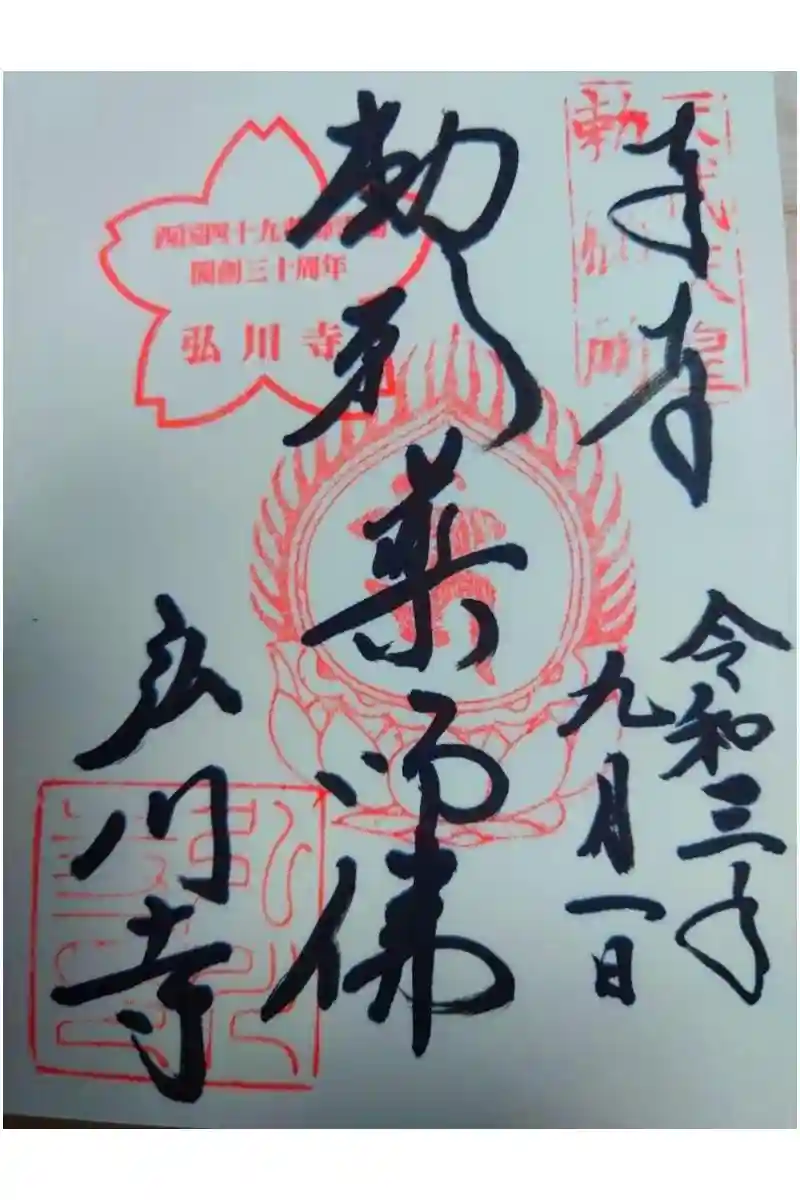 奉拝
天武天皇
令和三年
九月一日
勅願薬師佛
西国四十九薬師霊場
開創三十周年
弘川寺
弘川寺